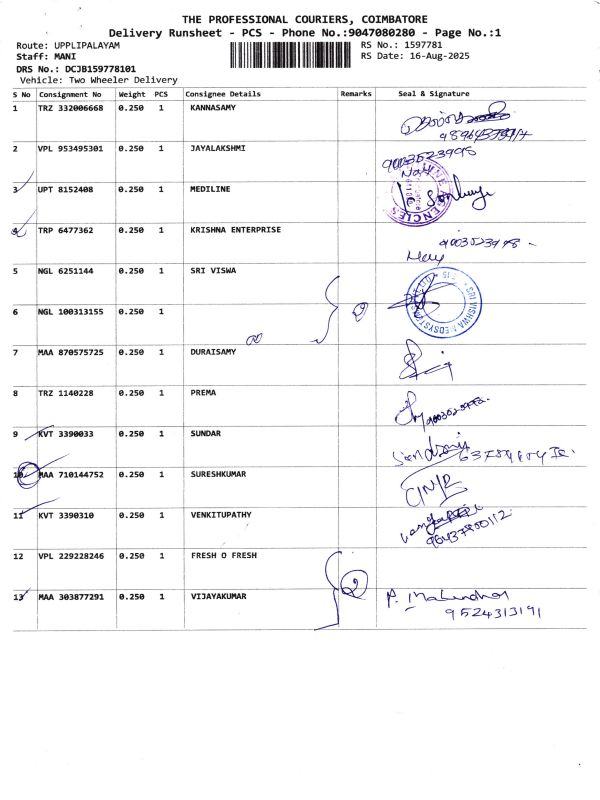 THE PROFESSIONAL COURIERS, COIMBATORE
Delivery Runsheet - PCS - Phone No.:9047080280 - Page No.:1
Route: UPPLIPALAYAM RS No.: 1597781
Staff: MANI RS Date: 16-Aug-2025
DRS No.: DCJB159778101
Vehicle: Two Wheeler Delivery
S No Consignment No Weight PCS Consignee Details Remarks Seal & Signature
1 TRZ 332006668 0.250 1 KANNASAMY
2 VPL 953495301 0.250 1 JAYALAKSHMI
9003523995
3 UPT 8152408 0.250 1 MEDILINE
4 TRP 6477362 0.250 1 KRISHNA ENTERPRISE
5 NGL 6251144 0.250 1 SRI VISWA
6 NGL 100313155 0.250 1
7 MAA 870575725 0.250 1 DURAISAMY
8 TRZ 1140228 0.250 1 PREMA
9 KVT 3390033 0.250 1 SUNDAR
10 MAA 710144752 0.250 1 SURESHKUMAR
11 KVT 3390310 0.250 1 VENKITUPATHY
12 VPL 229228246 0.250 1 FRESH O FRESH
2
13 MAA 303877291 0.250 1 VIJAYAKUMAR
9524313191